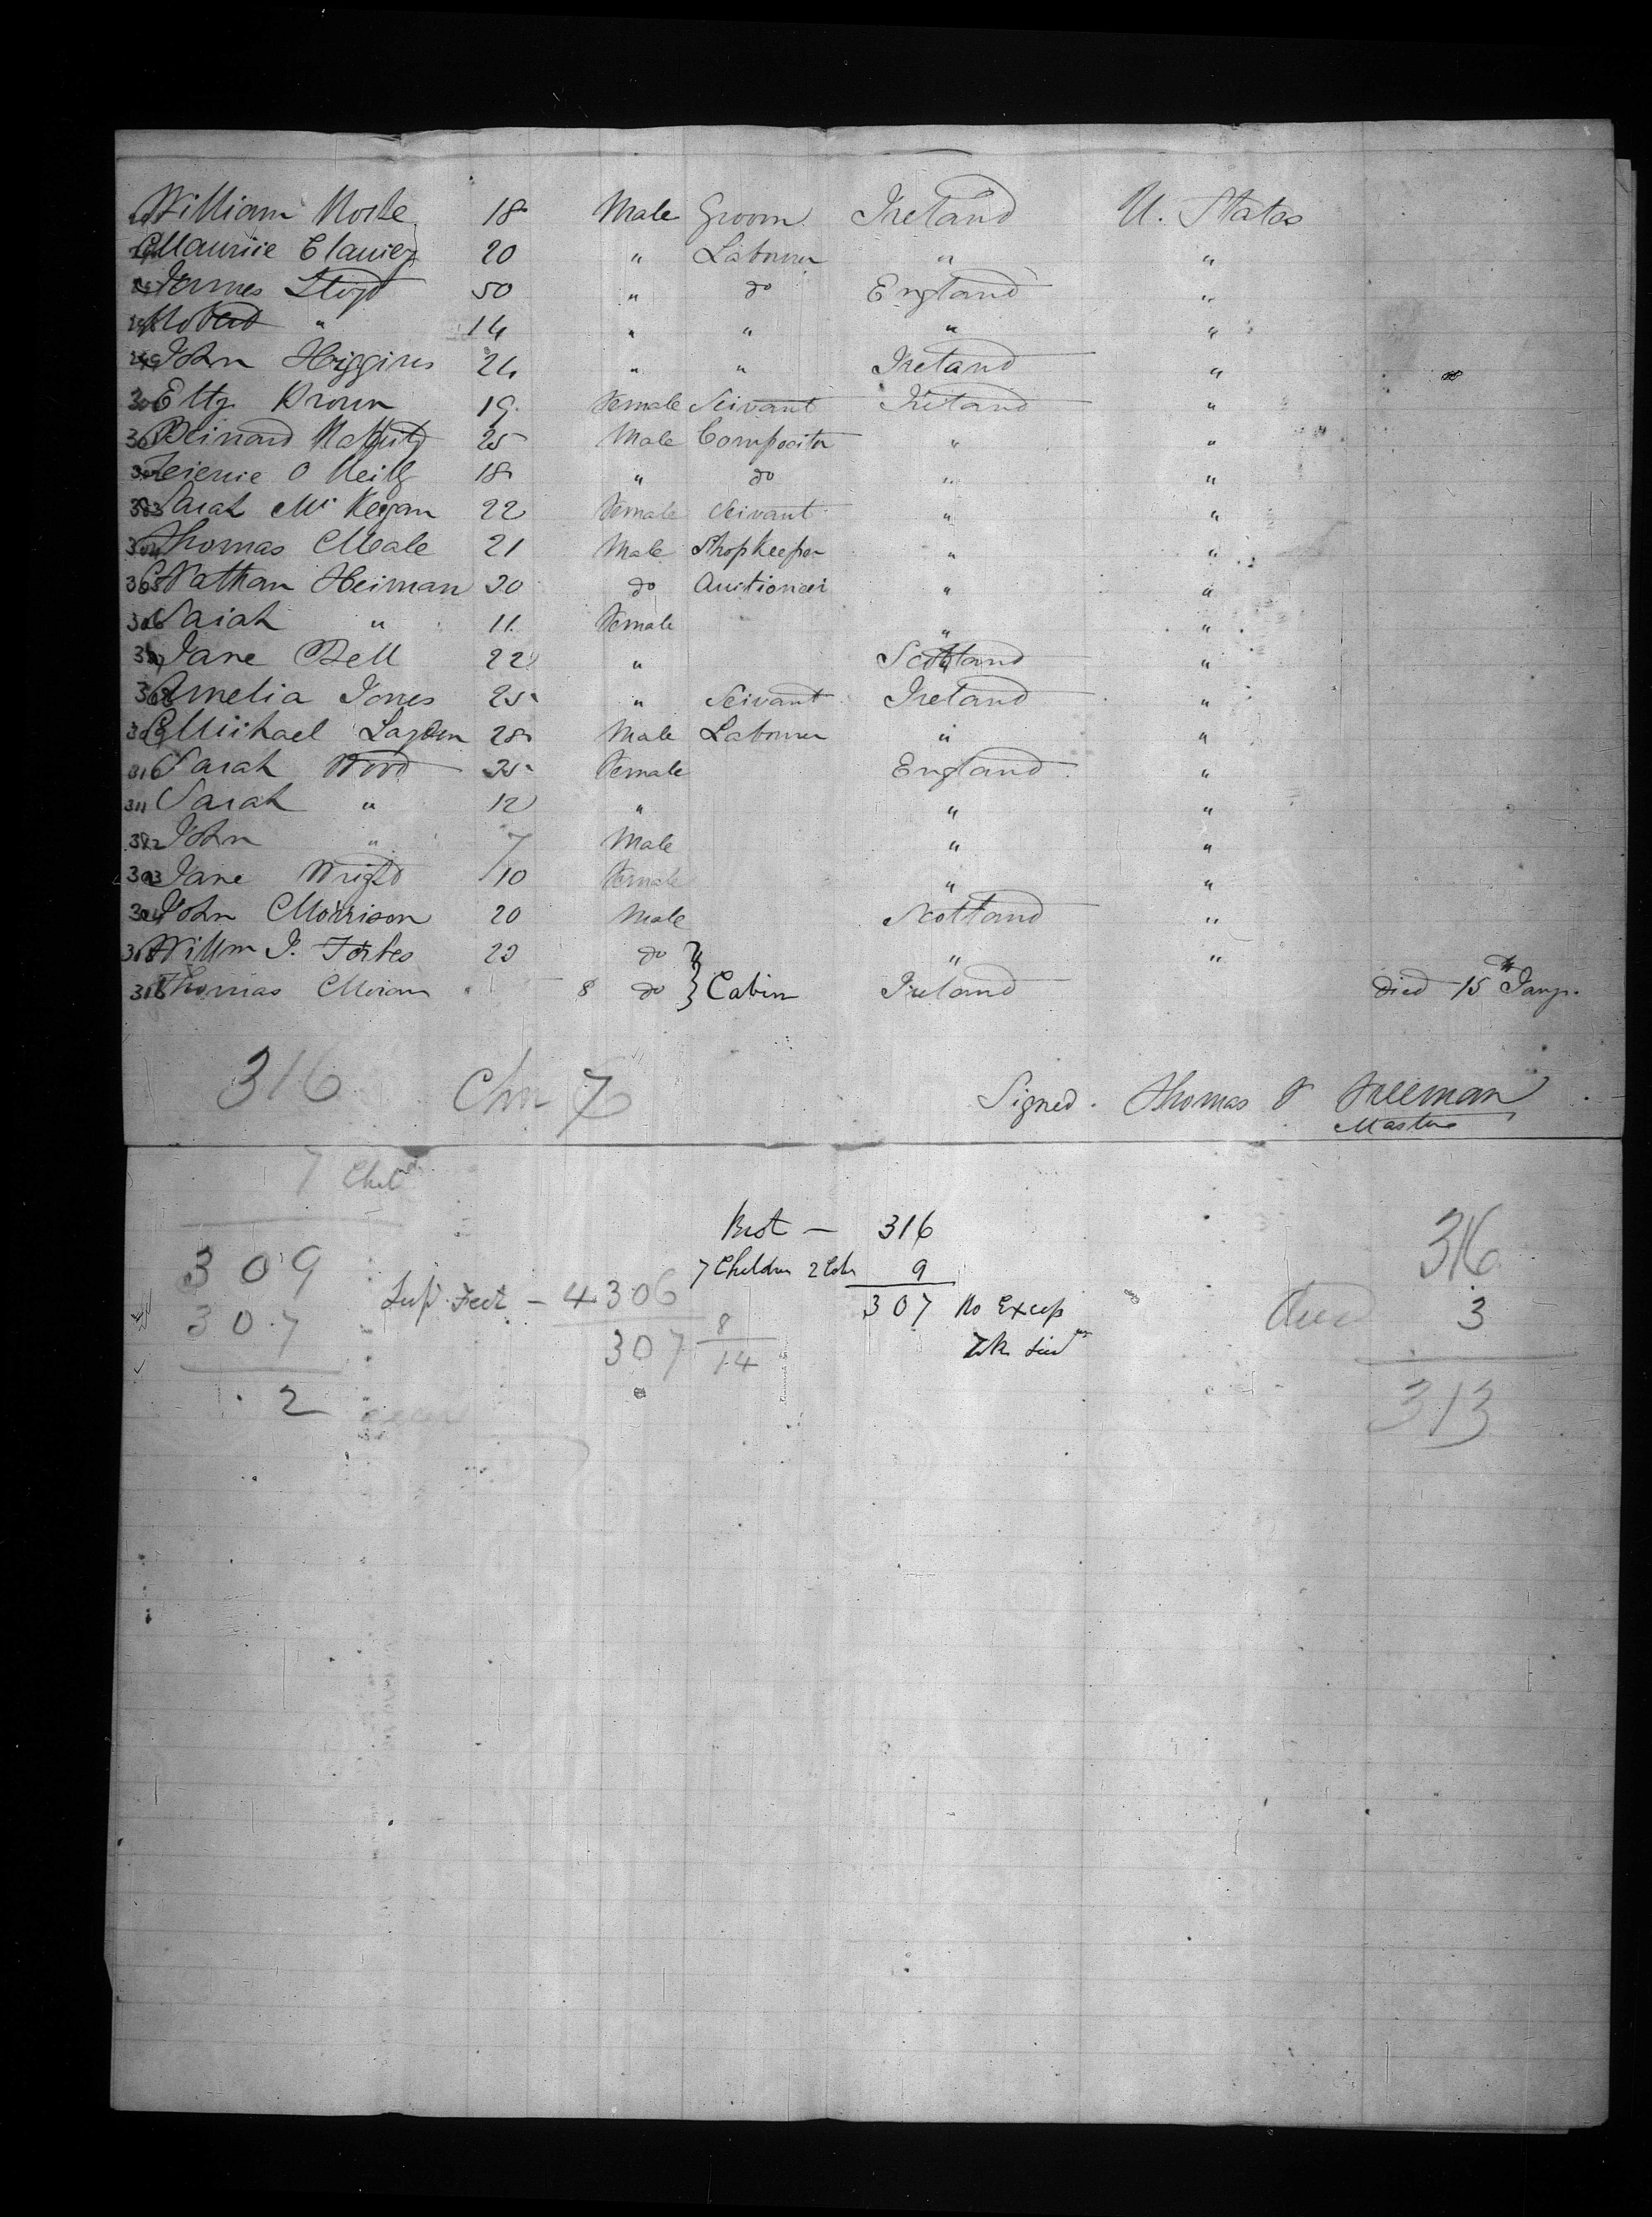 William 18 Male Groom Ireland U. States
20 " Labourer " "
James Lloyd 50 " do England "
Robert " 14 " " " "
John Higgins 24 " " Ireland "
300 Brown 19 Female Servant Ireland "
301 Bernard 25 Male Compositor " "
O Neill 18 " do " "
303 Sarah Mc Kegan 22 Female Servant " "
304 Thomas Meale 21 Male Shopkeeper " "
305 Nathan Heiman 30 do Auctioneer " "
306 Sarah " 11 Female " "
307 Jane Bell 22 " Scotland "
308 Amelia Jones 25 " Servant Ireland "
309 Michael 28 Male Labourer " "
310 Sarah Wood 35 Female England "
311 Sarah " 12 " " "
312 John " 7 Male " "
313 Jane Wright /10 Female " "
314 John Morrison 20 Male Scotland "
315 Willm J. Forbes 23 do " " "
316 Thomas Moran 8 do } Cabin Ireland died 15th Jany.
316 Chn 7 Signed. Thomas F Freeman
Master
7 Child
Brot — 316 316
309 7 Children 2 Cabn 9
307 Supl Feet — 4306 307 No Excep died 3
307 8/14
2 313